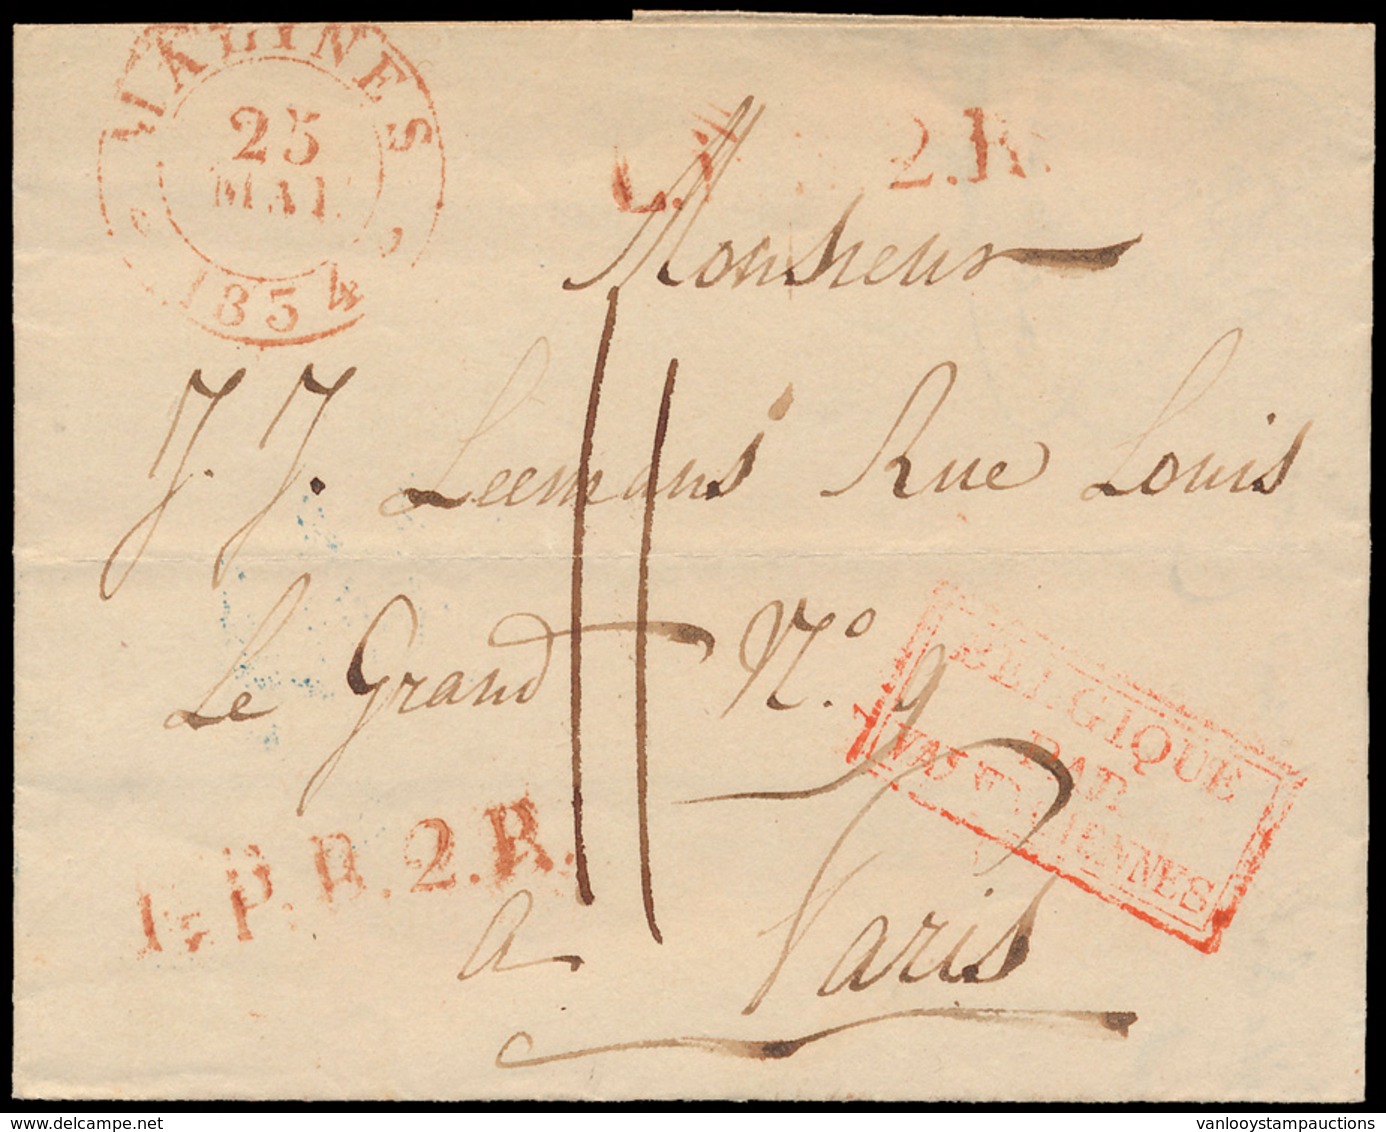 MALINES
25
MAI.
1834
2.R.
Monsieur
J. J. Leemans Rue Louis
Le Grand N.º 9
BELGIQUE
PAR
VALENCIENNES
L.P.B.2.R.
11
a Paris
vanlooystampauctions